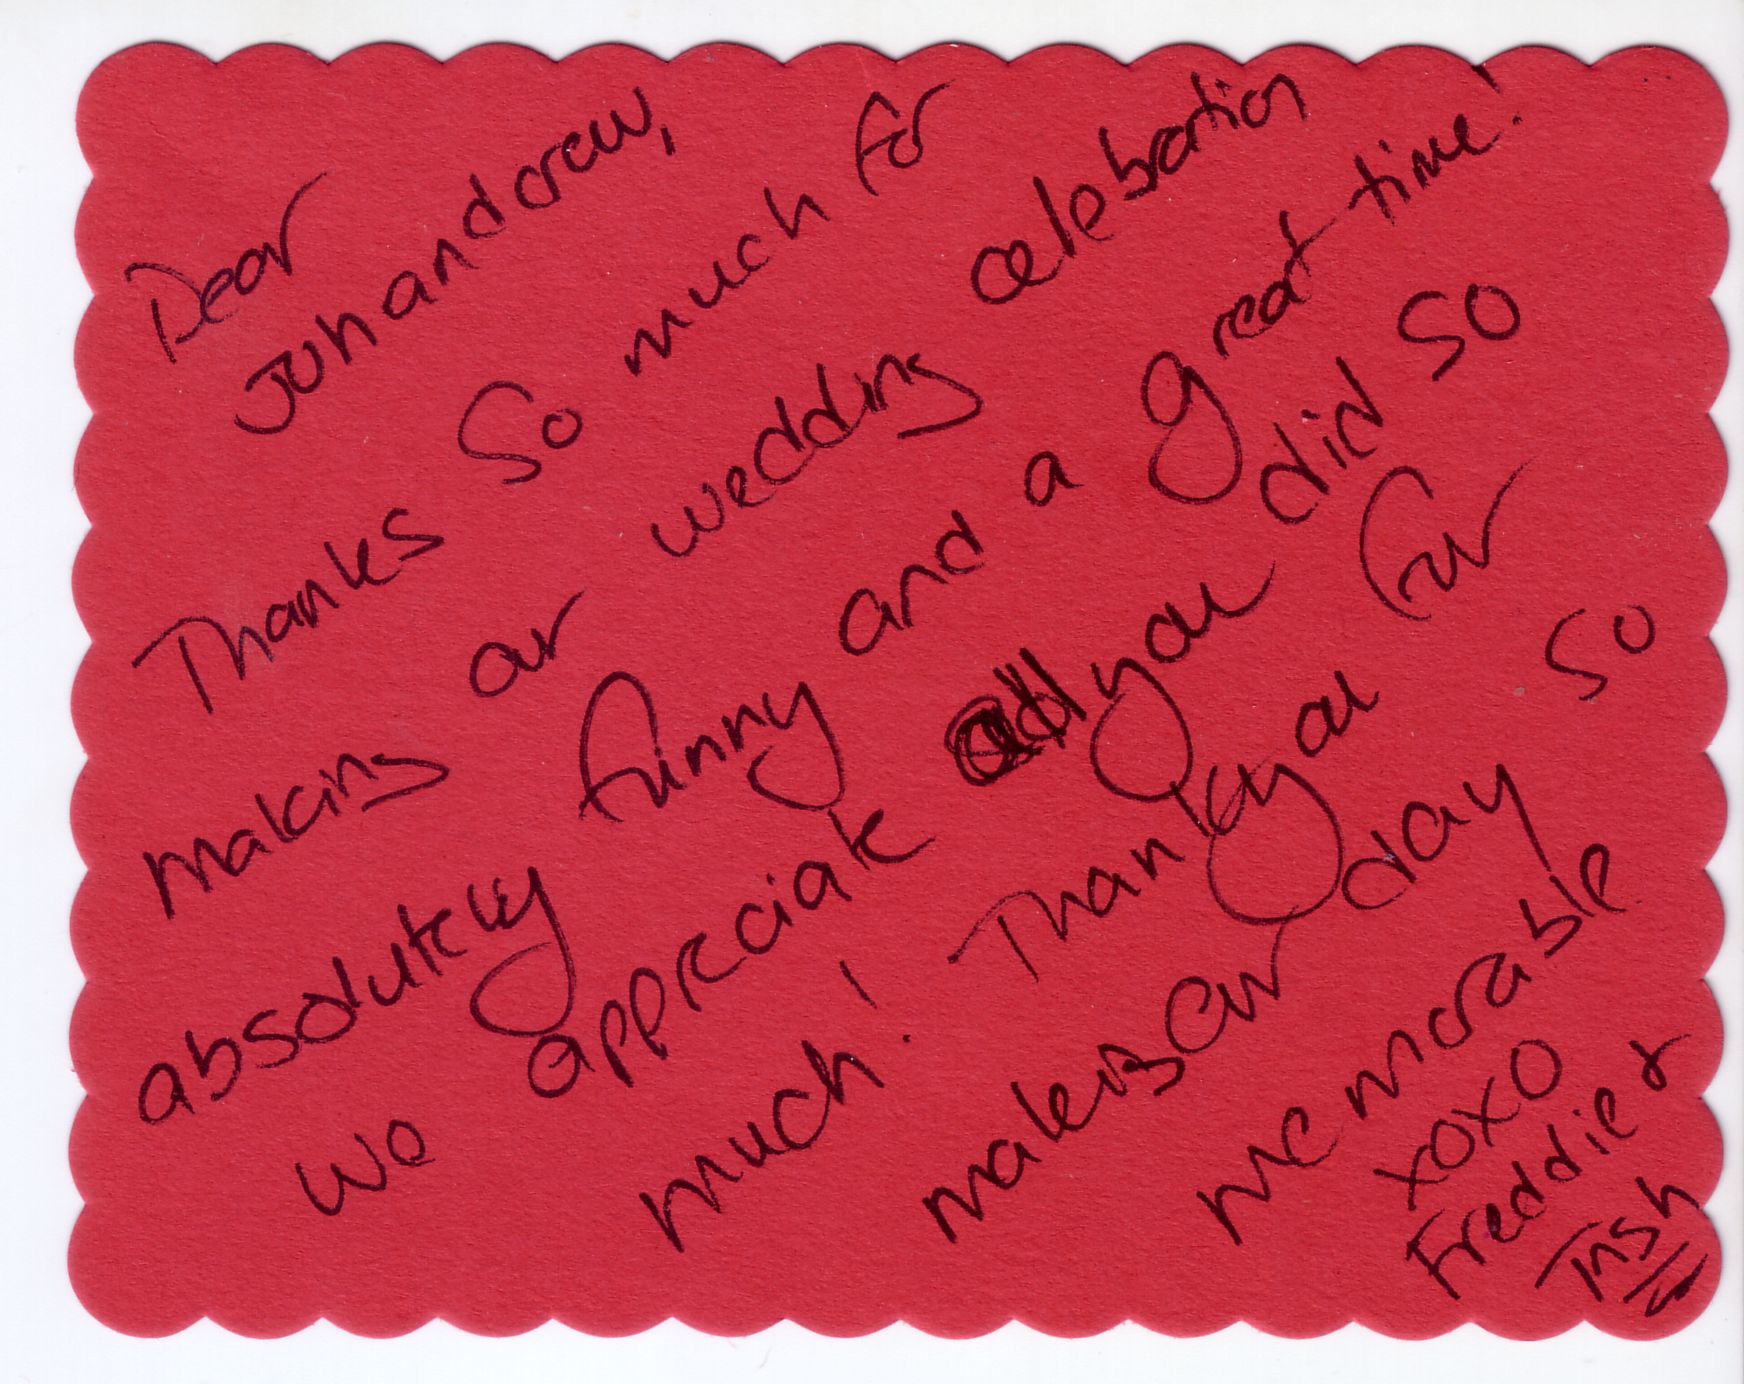 Dear
Juh and crew,
Thanks so much for
making our wedding celebration
absolutely funny and a great time!
We appreciate all you did so
much! Thank you for
making our day so
memorable
xoxo
Freddie &
Trish